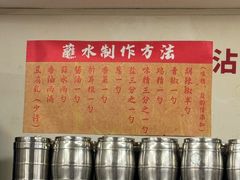 蘸水制作方法
(味精、盐
鲜辣椒半勺
香椿一勺
鸡精一勺
味精三分之一勺
盐三分之一勺
葱一勺
香菜一勺
折耳根一勺
酱油一勺
蒜水两勺
香油两滴
豆腐乳(少许)
沾